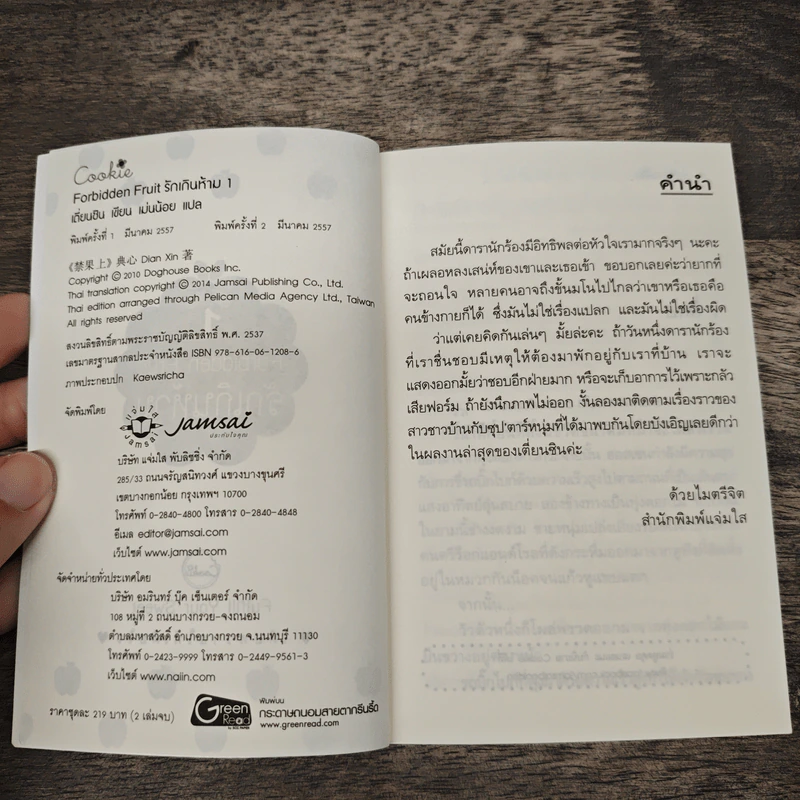 Cookie
Forbidden Fruit รักเกินห้าม 1
เตี่ยนซิน เขียน เม่นน้อย แปล
พิมพ์ครั้งที่ 1 มีนาคม 2557 พิมพ์ครั้งที่ 2 มีนาคม 2557
《禁果上》典心 Dian Xin 著
Copyright © 2010 Doghouse Books Inc.
Thai translation copyright © 2014 Jamsai Publishing Co., Ltd.
Thai edition arranged through Pelican Media Agency Ltd., Taiwan
All rights reserved
สงวนลิขสิทธิ์ตามพระราชบัญญัติลิขสิทธิ์ พ.ศ. 2537
เลขมาตรฐานสากลประจำหนังสือ ISBN 978-616-06-1208-6
ภาพประกอบปก Kaewsricha
จัดพิมพ์โดย
แจ่มใส
Jamsai
Jamsai
ประทับใจคุณ
บริษัท แจ่มใส พับลิชชิ่ง จำกัด
285/33 ถนนจรัญสนิทวงศ์ แขวงบางขุนศรี
เขตบางกอกน้อย กรุงเทพฯ 10700
โทรศัพท์ 0-2840-4800 โทรสาร 0-2840-4848
อีเมล editor@jamsai.com
เว็บไซต์ www.jamsai.com
จัดจำหน่ายทั่วประเทศโดย
บริษัท อมรินทร์ บุ๊ค เซ็นเตอร์ จำกัด
108 หมู่ที่ 2 ถนนบางกรวย-จงถนอม
ตำบลมหาสวัสดิ์ อำเภอบางกรวย จ.นนทบุรี 11130
โทรศัพท์ 0-2423-9999 โทรสาร 0-2449-9561-3
เว็บไซต์ www.naiin.com
ราคาชุดละ 219 บาท (2 เล่มจบ)
Green
Read
by SCG PAPER
พิมพ์บน
กระดาษถนอมสายตากรีนรี้ด
www.greenread.com
คำนำ
สมัยนี้ดารานักร้องมีอิทธิพลต่อหัวใจเรามากจริงๆ นะคะ
ถ้าเผลอหลงเสน่ห์ของเขาและเธอเข้า ขอบอกเลยค่ะว่ายากที่
จะถอนใจ หลายคนอาจถึงขั้นมโนไปไกลว่าเขาหรือเธอคือ
คนข้างกายก็ได้ ซึ่งมันไม่ใช่เรื่องแปลก และมันไม่ใช่เรื่องผิด
ว่าแต่เคยคิดกันเล่นๆ มั้ยล่ะคะ ถ้าวันหนึ่งดารานักร้อง
ที่เราชื่นชอบมีเหตุให้ต้องมาพักอยู่กับเราที่บ้าน เราจะ
แสดงออกมั้ยว่าชอบอีกฝ่ายมาก หรือจะเก็บอาการไว้เพราะกลัว
เสียฟอร์ม ถ้ายังนึกภาพไม่ออก งั้นลองมาติดตามเรื่องราวของ
สาวชาวบ้านกับซุป'ตาร์หนุ่มที่ได้มาพบกันโดยบังเอิญเลยดีกว่า
ในผลงานล่าสุดของเตี่ยนซินค่ะ
ด้วยไมตรีจิต
สำนักพิมพ์แจ่มใส